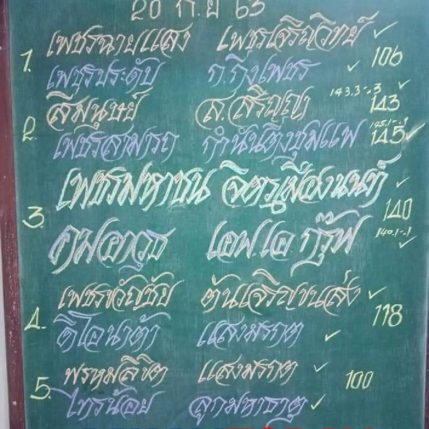 20 ก.ย 63
1. เพชรฉายแสง เพชรเจริญวิทย์ ✓
เพชรประดับ ก.กิ่งเพชร ✓ 106
สีมนุษย์ ส.สริญญา 143.3 143
2. เพชรสามารถ กำนันตุงชุมแพ 145 ✓
3. เพชรมหาชน จิตรเมืองนนท์ ✓
คมอาวุธ เอฟเอกรุ๊ป ✓ 140 140.1
เพชรขวัญชัย ต้นเจริญขนส่ง ✓
4. ดีโอน่าต้า แสงมรกต ✓ 118
พรหมลิขิต แสงมรกต ✓
5. ไทรน้อย ลูกมหาธาตุ ✓ 100